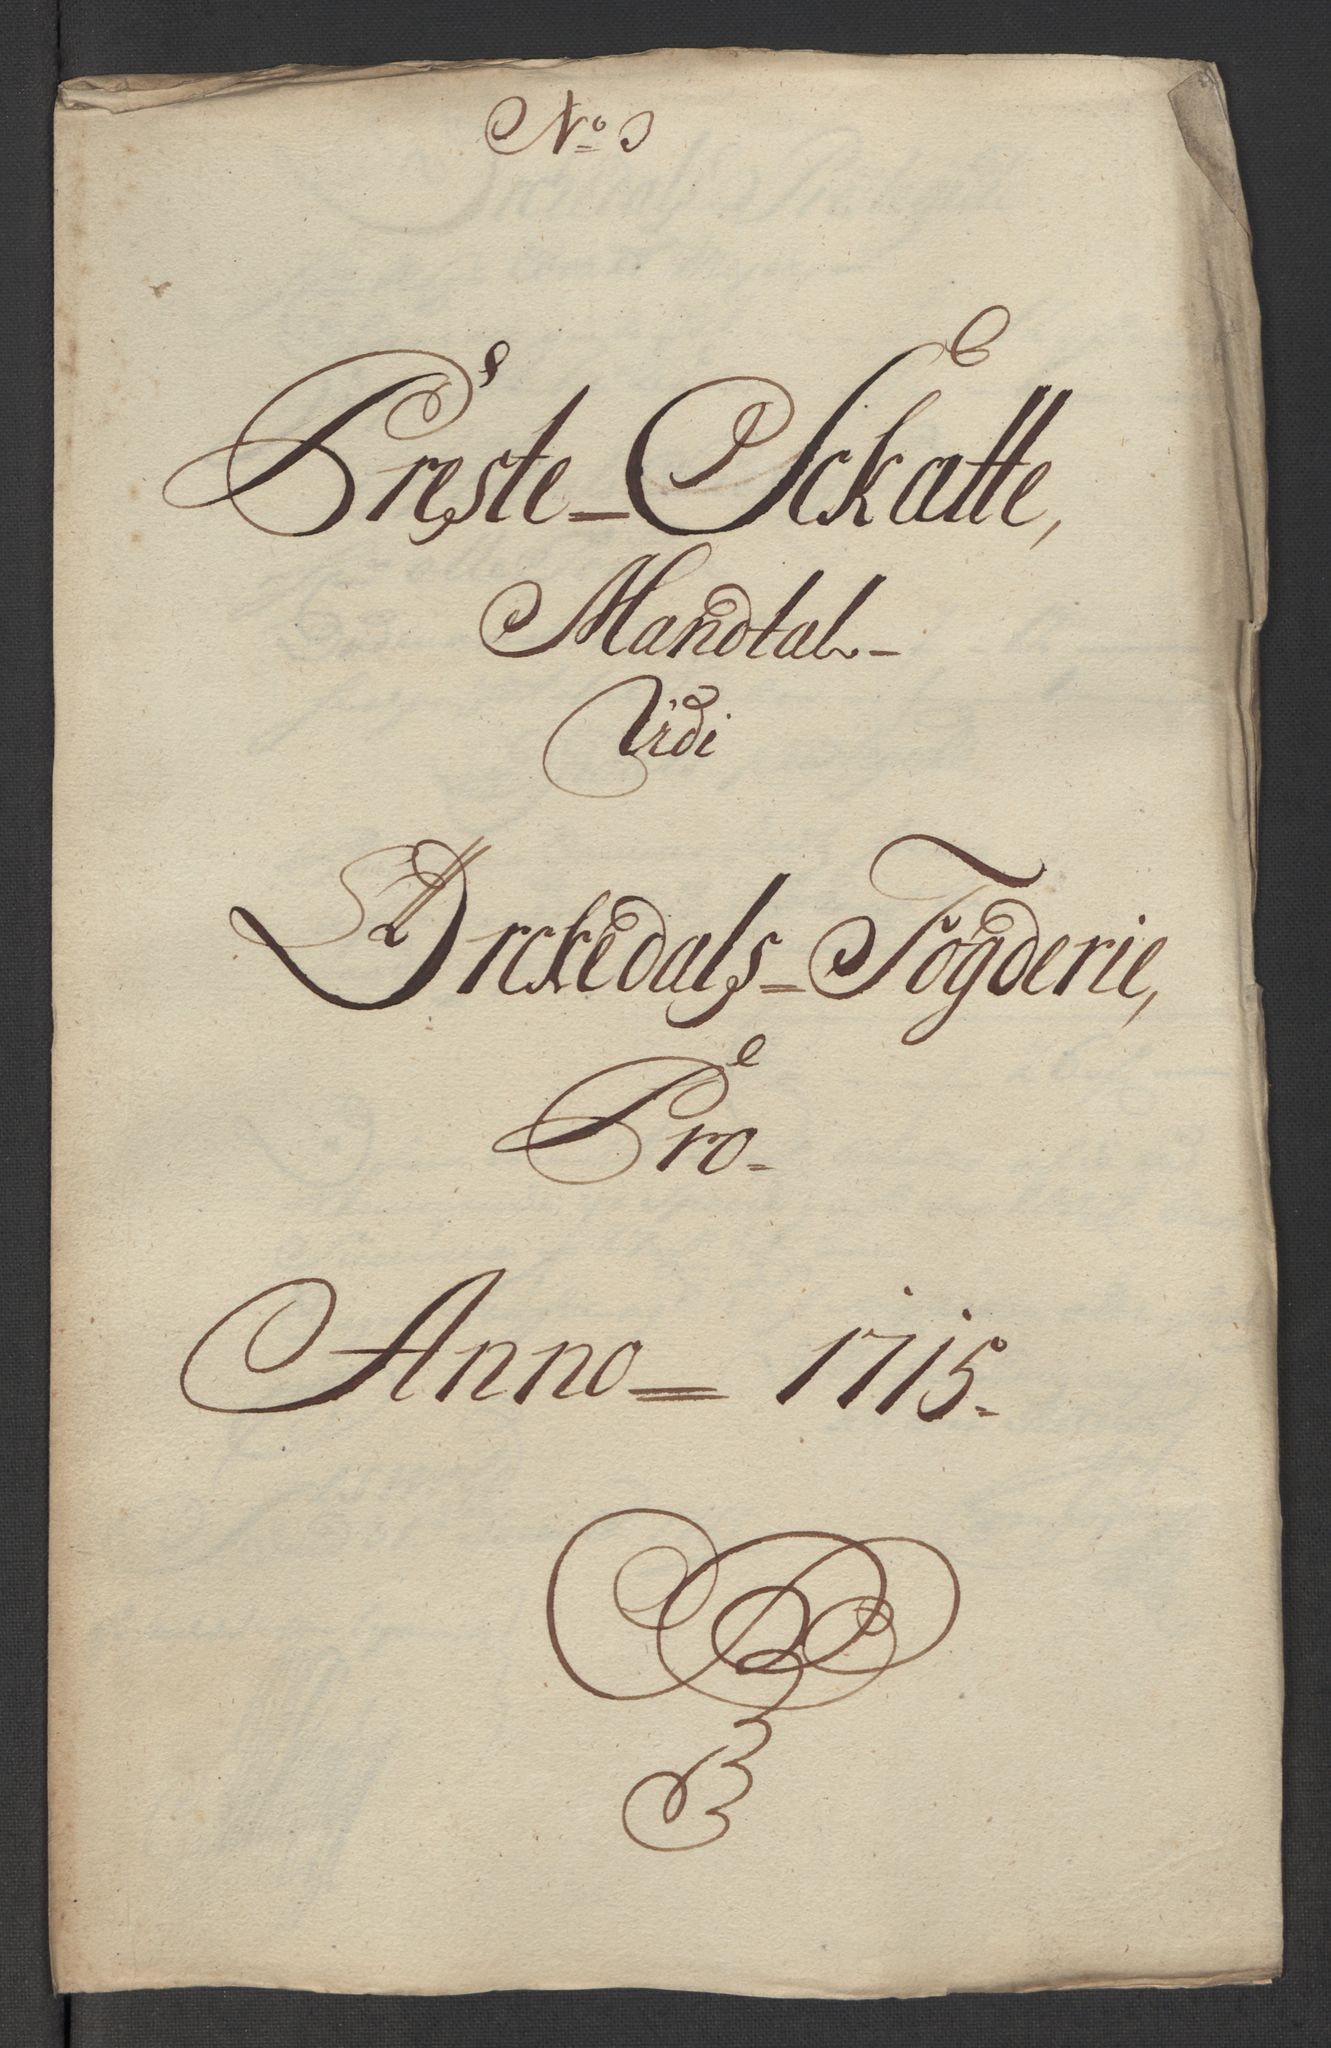 No 3
Preste-Sckatte,
Mandtal-
Udi
Orckedals-Fogderie,
Pro-
Anno- 1715.